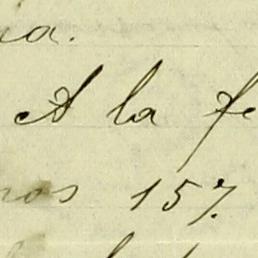 ia.
A la fe
nos 157.